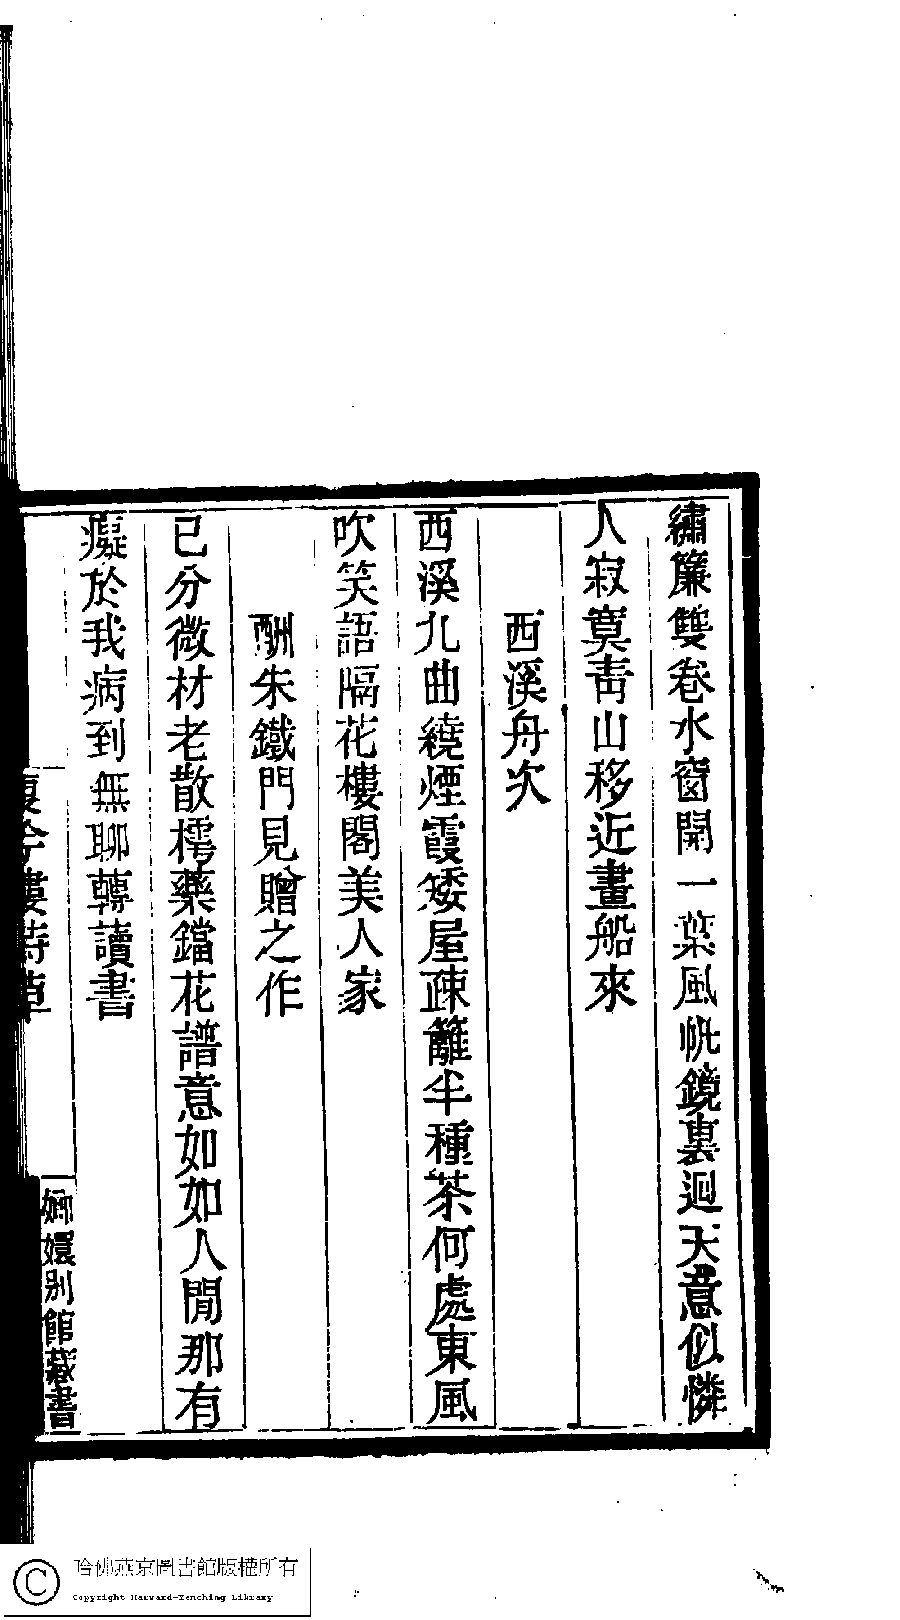 繡簾雙卷水窗開一葉風帆鏡裏迴天意似憐
人寂寞靑山移近畫船來
西溪舟次
西溪九曲繞煙霞矮屋疎籬半種茶何處東風
吹笑語隔花樓閣美人家
酬朱鐵門見贈之作
已分微材老散樗藥鐺花譜意如如人閒那有
癡於我病到無聊轉讀書
嫏嬛別館藏書
哈佛燕京圖書館版權所有
Copyright Harvard-Yenching Library